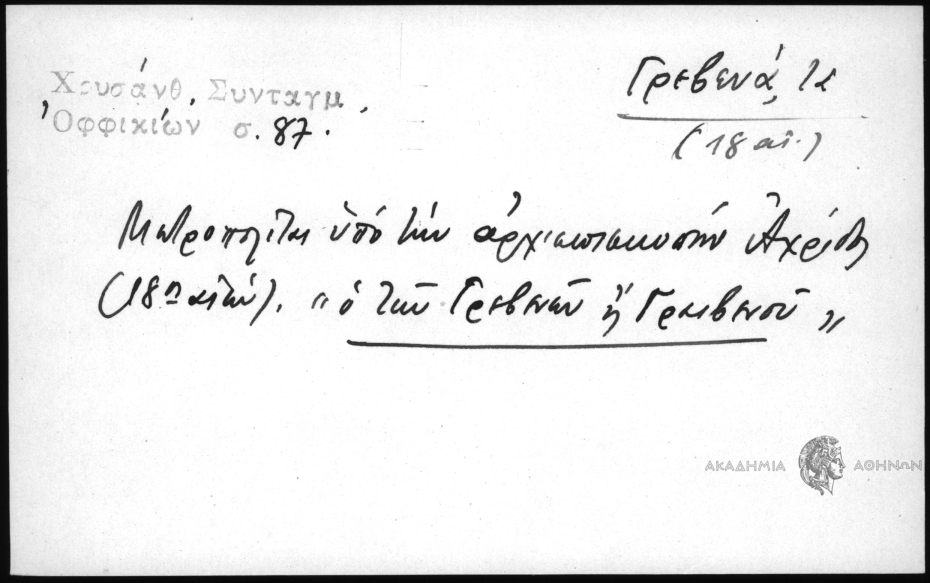 Χρυσάνθ. Συνταγμ
Ὀφφικίων σ. 87.
Γρεβενά, τὰ
(18 αἰ.)
Μητροπολίτης ὑπό τήν ἀρχιεπισκοπήν Ἀχρίδος
(18ος αἰών). " ὁ τῶν Γρεβενῶν ἢ Γραιβενοῦ "
ΑΚΑΔΗΜΙΑ ΑΘΗΝΩΝ